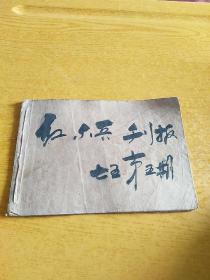 红小兵刊报
七五 第五期